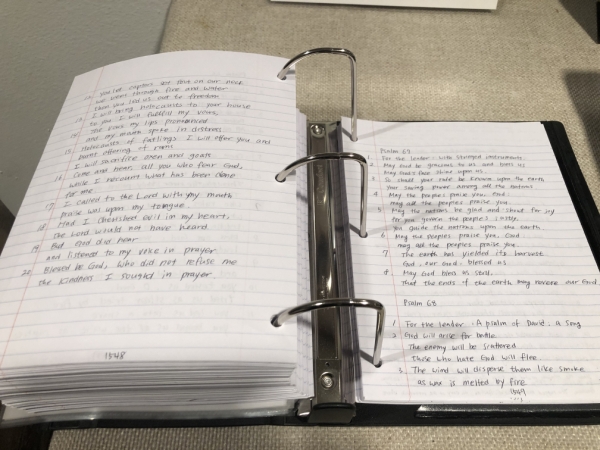 12. you let captors set foot on our neck
we went through fire and water
then you led us out to freedom
13. I will bring holocausts to your house
to you I will fulfill my vows,
14. The ones my lips pronounced
and my mouth spoke in distress
15. Holocausts of fatlings I will offer you and
burnt offering of rams
I will sacrifice oxen and goats
16. Come and hear, all you who fear God,
while I recount what has been done
for me.
17. I called to the Lord with my mouth
praise was upon my tongue.
18. Had I cherished evil in my heart,
the Lord would not have heard.
19. But God did hear
and listened to my voice in prayer
20. Blessed be God, who did not refuse me
the kindness I sought in prayer.
1548
Psalm 67
1. For the leader with stringed instruments.
2. May God be gracious to us and bless us
May God's face shine upon us.
3. So shall your rule be known upon the earth
Your saving power among all the nations
4. May the peoples praise you, God;
may all the peoples praise you.
5. May the nations be glad and shout for joy
for you govern the peoples justly.
you guide the nations upon the earth
6. May the peoples praise you, God.
may all the peoples praise you.
7. The earth has yielded its harvest
God, our God, blesses us
8. May God bless us still,
That the ends of the earth may revere our God.
Psalm 68
1. For the leader. A psalm of David. A song
2. God will arise for battle
The enemy will be scattered
Those who hate God will flee
3. The wind will disperse them like smoke
as wax is melted by fire
1549